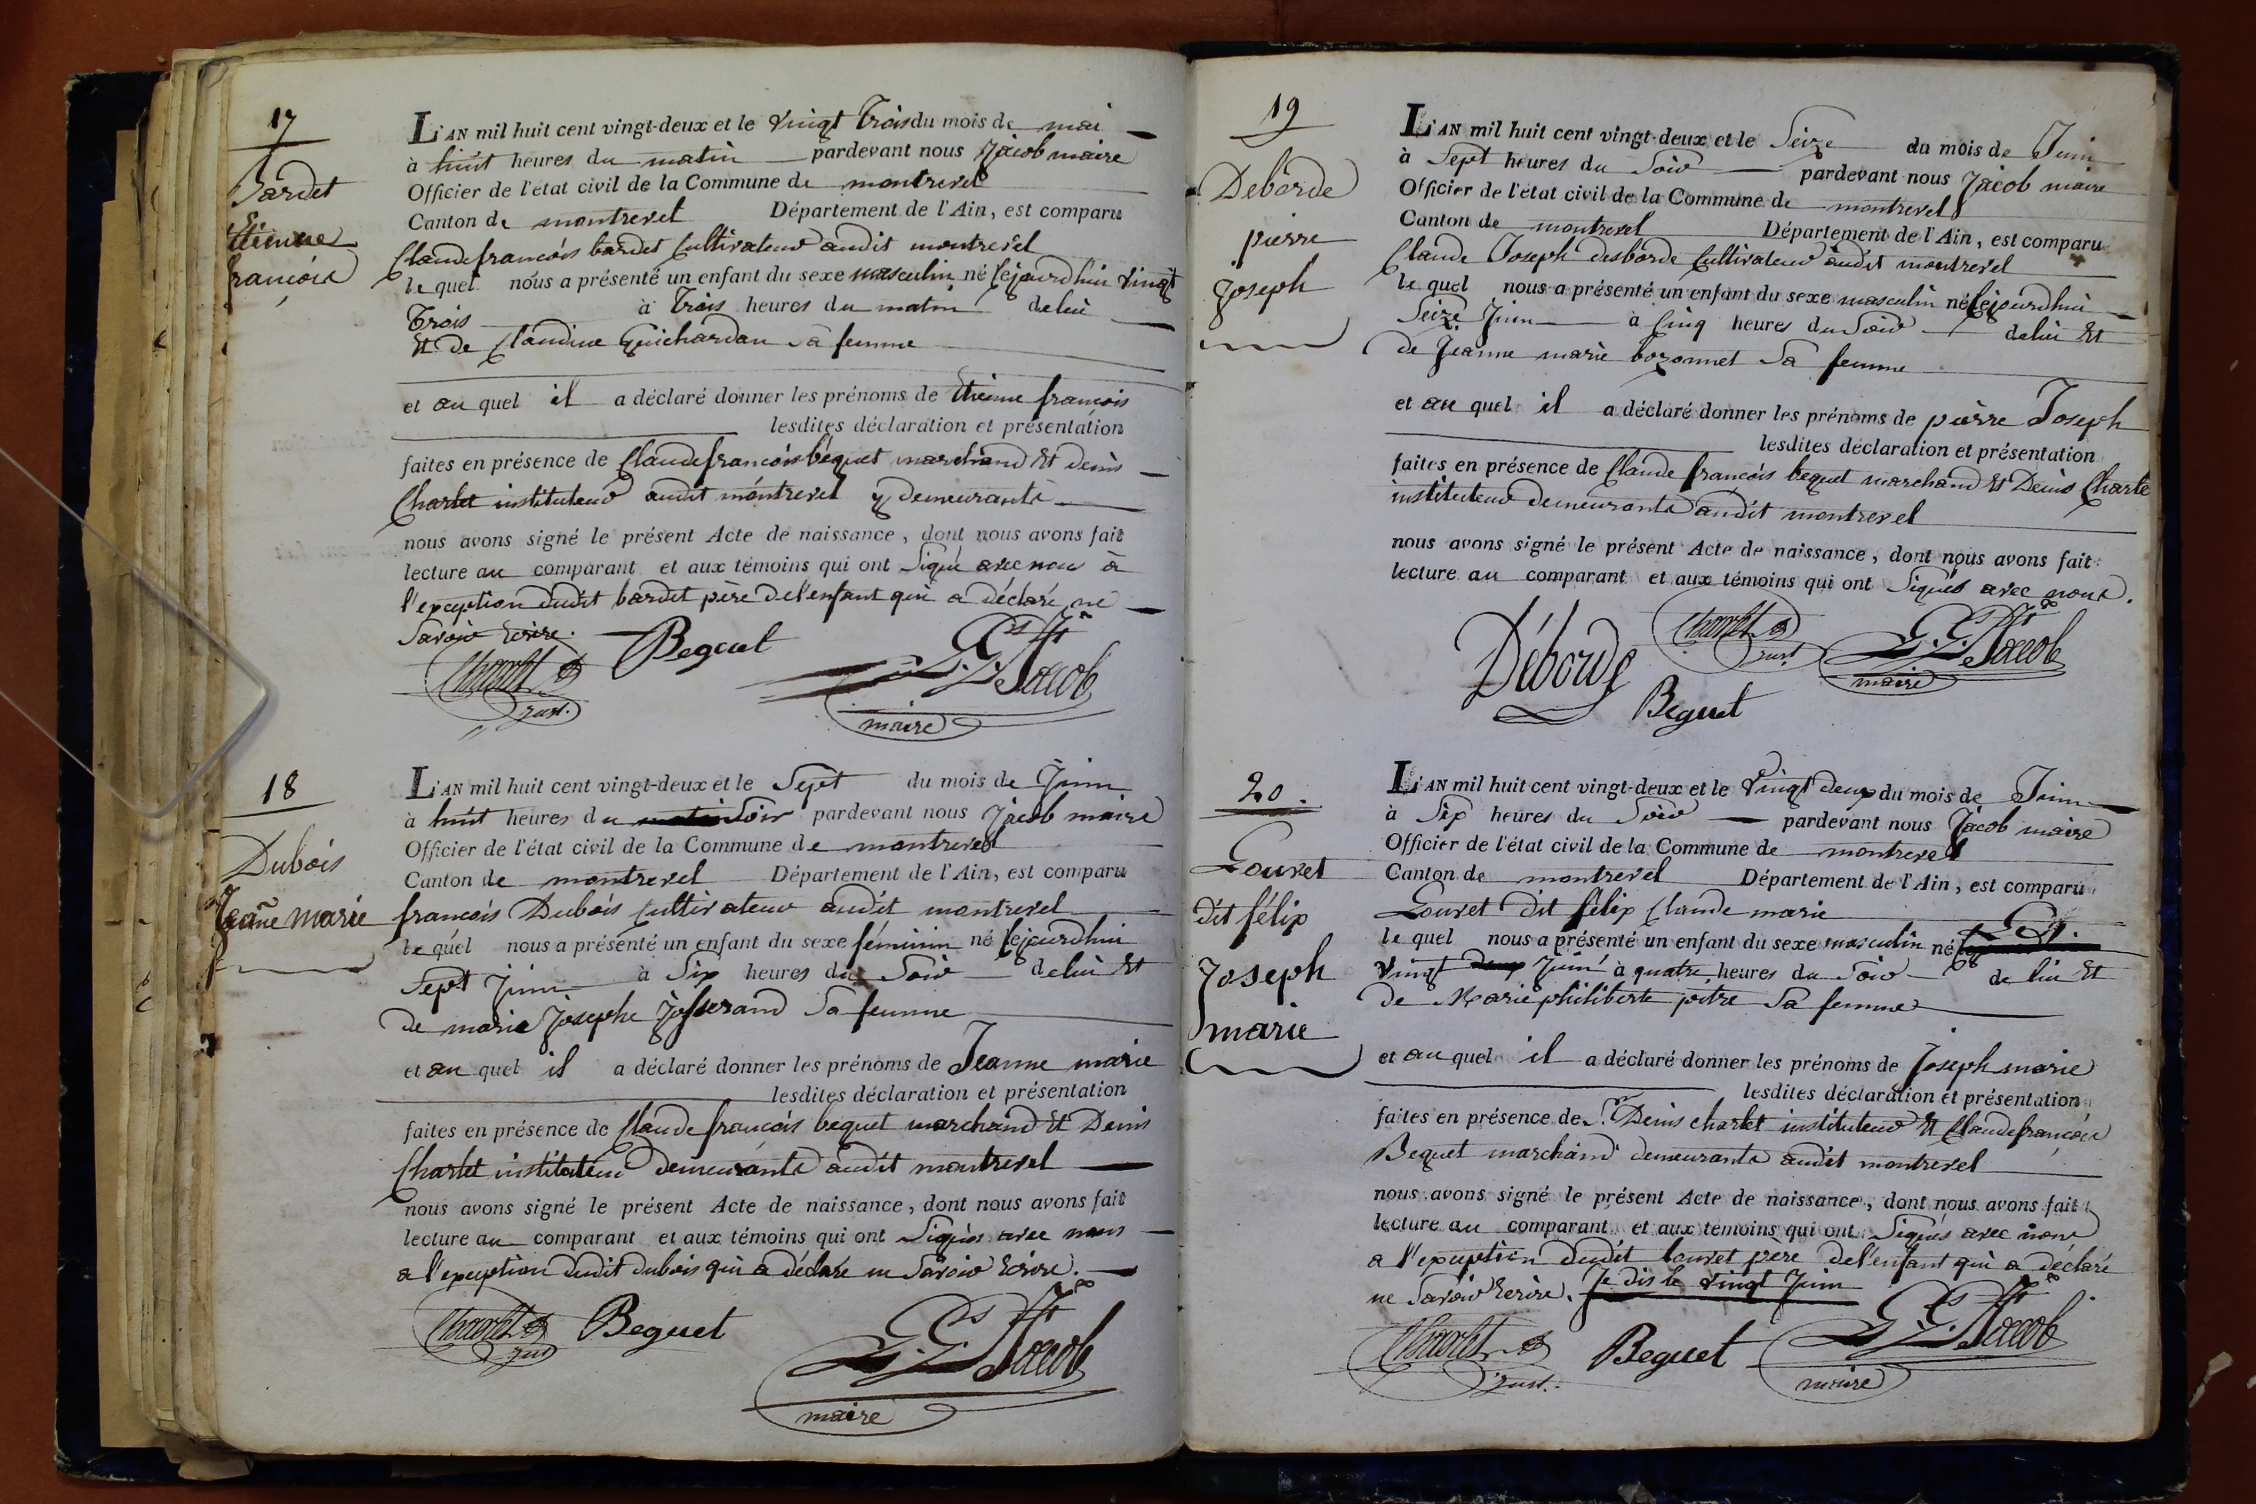 17
Bardet
Etienne
françois
L'AN mil huit cent vingt-deux et le vingt Trois du mois de mai
à huit heures du matin pardevant nous Jacob maire
Officier de l'état civil de la Commune de montrevel
Canton de montrevel Département de l'Ain, est comparu
Claude françois bardet Cultivateur audit montrevel
le quel nous a présenté un enfant du sexe masculin né Cejourdhui vingt
Trois à Trois heures du matin de lui
Et de Claudine Guichardan sa femme
et au quel il a déclaré donner les prénoms de Etienne françois
lesdites déclaration et présentation
faites en présence de Claude françois béquet marchand Et denis
Charlet instituteur audit montrevel y demeurants
nous avons signé le présent Acte de naissance, dont nous avons fait
lecture au comparant et aux témoins qui ont Signé avec nous à
l'exception dudit bardet père de l'enfant qui a déclaré ne
Savoir Ecrire.
Charlet Beguet Jacob
maire
18
Dubois
Jeanne marie
L'AN mil huit cent vingt-deux et le Sept du mois de Juin
à huit heures du matin Soir pardevant nous Jacob maire
Officier de l'état civil de la Commune de montrevel
Canton de montrevel Département de l'Ain, est comparu
françois Dubois Cultivateur audit montrevel
le quel nous a présenté un enfant du sexe féminin né Cejourdhui
Sept Juin à Six heures du Soir de lui Et
de marie Josephe Josserand Sa femme
et au quel il a déclaré donner les prénoms de Jeanne marie
lesdites déclaration et présentation
faites en présence de Claude françois béquet marchand Et Denis
Charlet instituteur demeurants audit montrevel
nous avons signé le présent Acte de naissance, dont nous avons fait
lecture au comparant et aux témoins qui ont Signés avec nous
a l'exception dudit dubois qui a déclaré ne Savoir Ecrire.
Charlet Beguet Jacob
maire
19
Deborde
pierre
Joseph
L'AN mil huit cent vingt-deux et le Seize du mois de Juin
à Sept heures du Soir pardevant nous Jacob maire
Officier de l'état civil de la Commune de montrevel
Canton de montrevel Département de l'Ain, est comparu
Claude Joseph desborde Cultivateur audit montrevel
le quel nous a présenté un enfant du sexe masculin né Cejourdhui
Seize Juin à Cinq heures du Soir de lui Et
de Jeanne marie bozonnet Sa femme
et au quel il a déclaré donner les prénoms de pierre Joseph
lesdites déclaration et présentation
faites en présence de Claude françois bequet marchand Et Denis Charlet
instituteur demeurants audit montrevel
nous avons signé le présent Acte de naissance, dont nous avons fait
lecture au comparant et aux témoins qui ont Signés avec nous.
Déborde Charlet Jacob
maire
Beguet
20.
Louvet
dit félix
Joseph
marie
L'AN mil huit cent vingt-deux et le Vingt deux du mois de Juin
à Six heures du Soir pardevant nous Jacob maire
Officier de l'état civil de la Commune de montrevel
Canton de montrevel Département de l'Ain, est comparu
Louvet dit félix Claude marie
le quel nous a présenté un enfant du sexe masculin né
Vingt deux Juin à quatre heures du Soir de lui Et
de Marie philiberte poitre Sa femme
et au quel il a déclaré donner les prénoms de Joseph marie
lesdites déclaration et présentation
faites en présence de Sr. Denis charlet instituteur Et Claude françois
Bequet marchand demeurants audit montrevel
nous avons signé le présent Acte de naissance, dont nous avons fait
lecture au comparant et aux témoins qui ont Signés avec nous
a l'exception dudit louvet pere de l'enfant qui a déclaré
ne Savoir Ecrire. Je dis le vingt Juin
Charlet Beguet Jacob
maire